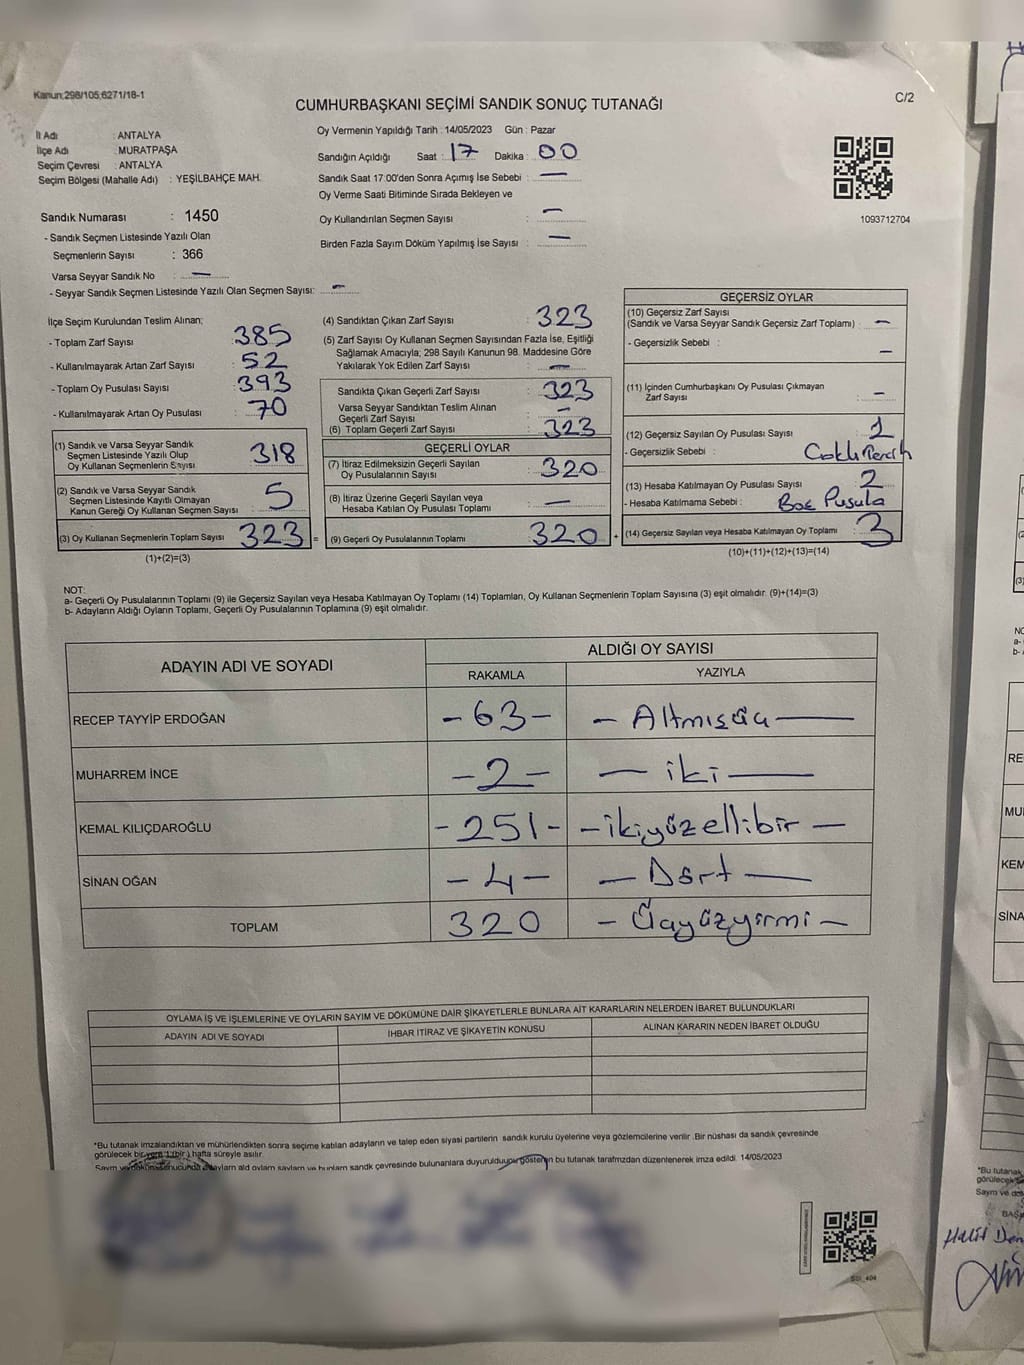 Kanun:298/105;6271/18-1
CUMHURBAŞKANI SEÇİMİ SANDIK SONUÇ TUTANAĞI
C/2
İl Adı : ANTALYA
İlçe Adı : MURATPAŞA
Seçim Çevresi : ANTALYA
Seçim Bölgesi (Mahalle Adı) : YEŞİLBAHÇE MAH.
Oy Vermenin Yapıldığı Tarih : 14/05/2023 Gün : Pazar
Sandığın Açıldığı Saat : 17 Dakika : 00
Sandık Saat 17:00'den Sonra Açımış İse Sebebi : —
Oy Verme Saati Bitiminde Sırada Bekleyen ve
Oy Kullandırılan Seçmen Sayısı : —
Birden Fazla Sayım Döküm Yapılmış İse Sayısı : —
1093712704
Sandık Numarası : 1450
- Sandık Seçmen Listesinde Yazılı Olan
Seçmenlerin Sayısı : 366
Varsa Seyyar Sandık No : —
- Seyyar Sandık Seçmen Listesinde Yazılı Olan Seçmen Sayısı: —
İlçe Seçim Kurulundan Teslim Alınan;
- Toplam Zarf Sayısı : 385
- Kullanılmayarak Artan Zarf Sayısı : 52
- Toplam Oy Pusulası Sayısı : 393
- Kullanılmayarak Artan Oy Pusulası : 70
(1) Sandık ve Varsa Seyyar Sandık
Seçmen Listesinde Yazılı Olup
Oy Kullanan Seçmenlerin Sayısı : 318
(2) Sandık ve Varsa Seyyar Sandık
Seçmen Listesinde Kayıtlı Olmayan
Kanun Gereği Oy Kullanan Seçmen Sayısı : 5
(3) Oy Kullanan Seçmenlerin Toplam Sayısı : 323 =
(1)+(2)=(3)
(4) Sandıktan Çıkan Zarf Sayısı : 323
(5) Zarf Sayısı Oy Kullanan Seçmen Sayısından Fazla İse, Eşitliği
Sağlamak Amacıyla; 298 Sayılı Kanunun 98. Maddesine Göre
Yakılarak Yok Edilen Zarf Sayısı : —
Sandıkta Çıkan Geçerli Zarf Sayısı : 323
Varsa Seyyar Sandıktan Teslim Alınan
Geçerli Zarf Sayısı : —
(6) Toplam Geçerli Zarf Sayısı : 323
GEÇERLİ OYLAR
(7) İtiraz Edilmeksizin Geçerli Sayılan
Oy Pusulasının Sayısı : 320
(8) İtiraz Üzerine Geçerli Sayılan veya
Hesaba Katılan Oy Pusulası Toplamı : —
(9) Geçerli Oy Pusulalarının Toplamı : 320 +
GEÇERSİZ OYLAR
(10) Geçersiz Zarf Sayısı
(Sandık ve Varsa Seyyar Sandık Geçersiz Zarf Toplamı) : —
- Geçersizlik Sebebi : —
(11) İçinden Cumhurbaşkanı Oy Pusulası Çıkmayan
Zarf Sayısı : —
(12) Geçersiz Sayılan Oy Pusulası Sayısı : 1
- Geçersizlik Sebebi : Çoklu Tercih
(13) Hesaba Katılmayan Oy Pusulası Sayısı : 2
- Hesaba Katılmama Sebebi : Boş Pusula
(14) Geçersiz Sayılan veya Hesaba Katılmayan Oy Toplamı : 3
(10)+(11)+(12)+(13)=(14)
NOT:
a- Geçerli Oy Pusulalarının Toplamı (9) ile Geçersiz Sayılan veya Hesaba Katılmayan Oy Toplamı (14) Toplamları, Oy Kullanan Seçmenlerin Toplam Sayısına (3) eşit olmalıdır. (9)+(14)=(3)
b- Adayların Aldığı Oyların Toplamı, Geçerli Oy Pusulalarının Toplamına (9) eşit olmalıdır.
ADAYIN ADI VE SOYADI
ALDIĞI OY SAYISI
RAKAMLA YAZIYLA
RECEP TAYYİP ERDOĞAN - 63 - - Altmışüç -
MUHARREM İNCE - 2 - - iki -
KEMAL KILIÇDAROĞLU - 251 - - ikiyüzellibir -
SİNAN OĞAN - 4 - - Dört -
TOPLAM 320 - Üçyüzyirmi -
OYLAMA İŞ VE İŞLEMLERİNE VE OYLARIN SAYIM VE DÖKÜMÜNE DAİR ŞİKAYETLERLE BUNLARA AİT KARARLARIN NELERDEN İBARET BULUNDUKLARI
ADAYIN ADI VE SOYADI İHBAR İTİRAZ VE ŞİKAYETİN KONUSU ALINAN KARARIN NEDEN İBARET OLDUĞU
*Bu tutanak imzalandıktan ve mühürlendikten sonra seçime katılan adayların ve talep eden siyasi partilerin sandık kurulu üyelerine veya gözlemcilerine verilir .Bir nüshası da sandık çevresinde
görülecek bir yere 1 (bir ) hafta süreyle asılır.
gösteren bu tutanak tarafımızdan düzenlenerek imza edildi. 14/05/2023